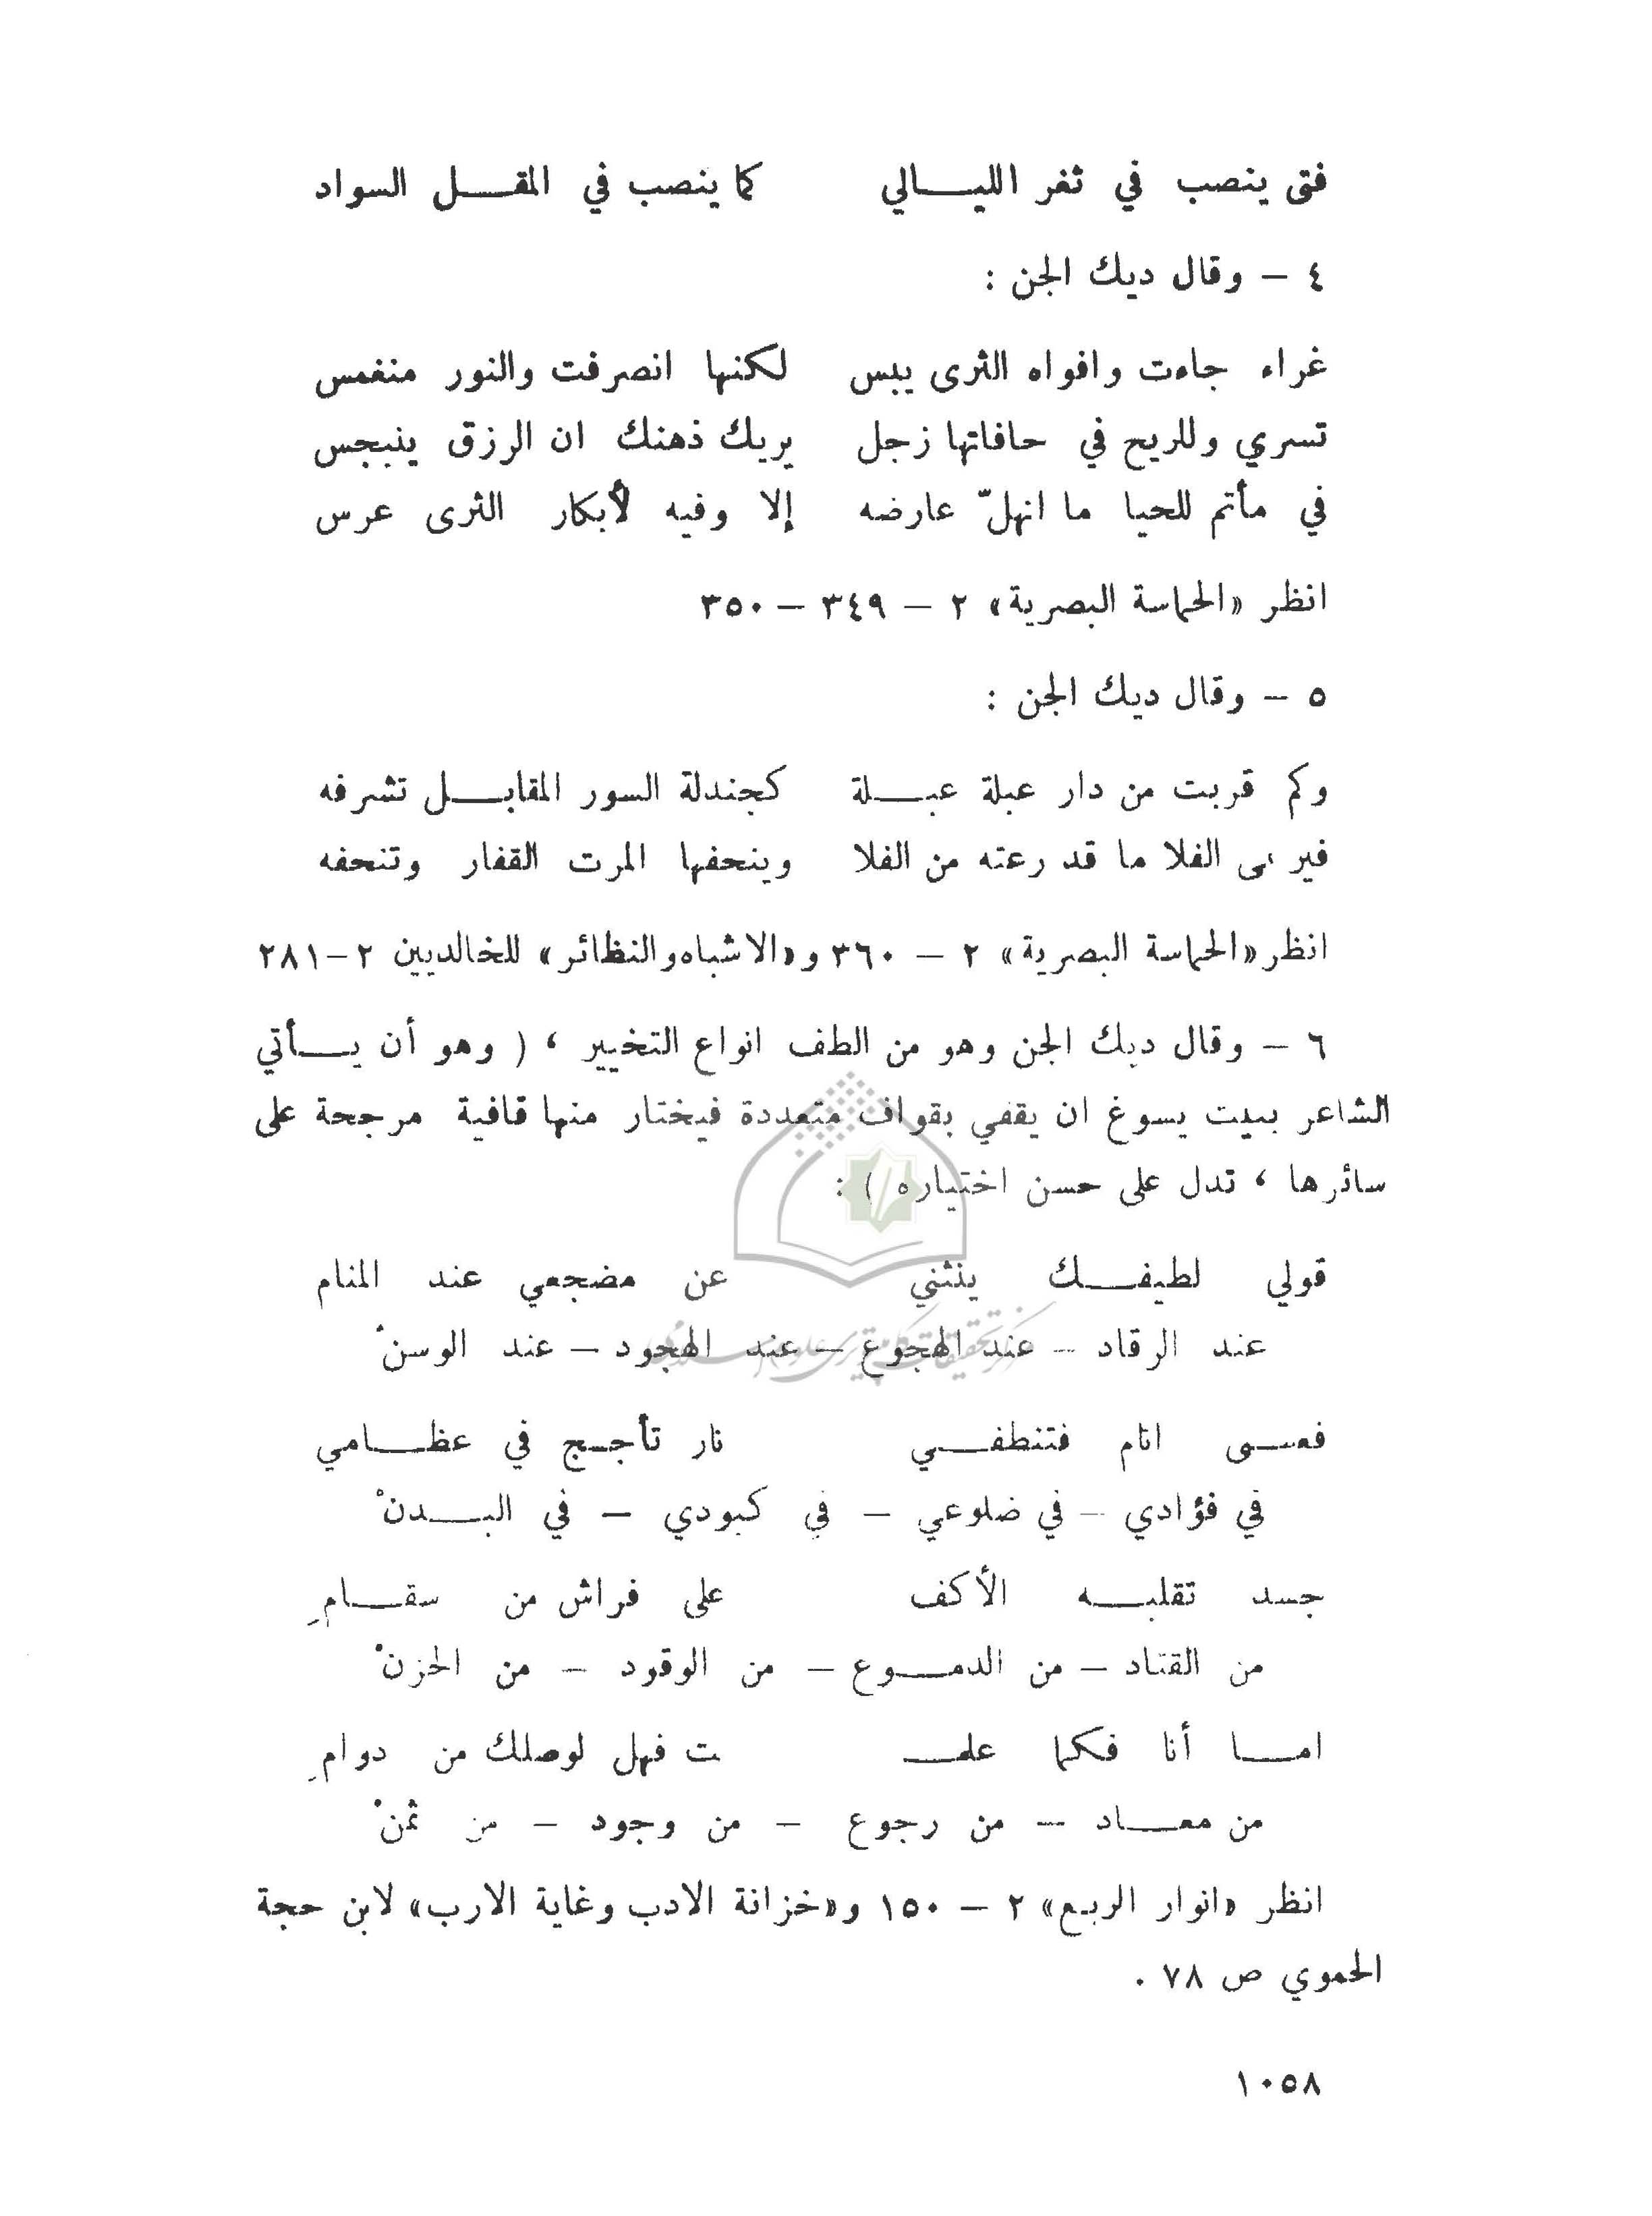 فتى ينصب في ثغر الليــالي كما ينصب في المقــل السواد
٤ – وقال ديك الجن :
غراء جاءت وافواه الثرى يبس لكنها انصرفت والنور منغمس
تسري وللريح في حافاتها زجل يريك ذهنك ان الرزق ينبجس
في مأتم للحيا ما انهلّ عارضه إلا وفيه لأبكار الثرى عرس
انظر «الحماسة البصرية» ٢ – ٣٤٩ – ٣٥٠
٥ – وقال ديك الجن :
وكم قربت من دار عبلة عبــلة كجندلة السور المقابــل تشرفه
فيرعى الفلا ما قد رعته من الفلا وينحفها المرت القفار وتنحفه
انظر «الحماسة البصرية» ٢ – ٣٦٠ و«الاشباه والنظائر» للخالديين ٢–٢٨١
٦ – وقال ديك الجن وهو من الطف انواع التخيير ، ( وهو أن يــأتي
الشاعر ببيت يسوغ ان يقفي بقواف متعددة فيختار منها قافية مرجحة على
سائرها ، تدل على حسن اختياره ) :
قولي لطيفــك ينثني عن مضجعي عند المنام
عند الرقاد – عند الهجوع – عند الهجود – عند الوسنْ
فعســى انام فتنطفــي نار تأجــج في عظــامي
في فؤادي – في ضلوعي – في كبودي – في البــدنْ
جسد تقلبــه الأكف على فراش من سقــامِ
من القتاد – من الدمــوع – من الوقود – من الحزنْ
امــا أنا فكما علمــ ــت فهل لوصلك من دوامِ
من معــاد – من رجوع – من وجود – من ثمنْ
انظر «انوار الربيع» ٢ – ١٥٠ و«خزانة الادب وغاية الارب» لابن حجة
الحموي ص ٧٨ .
١٠٥٨